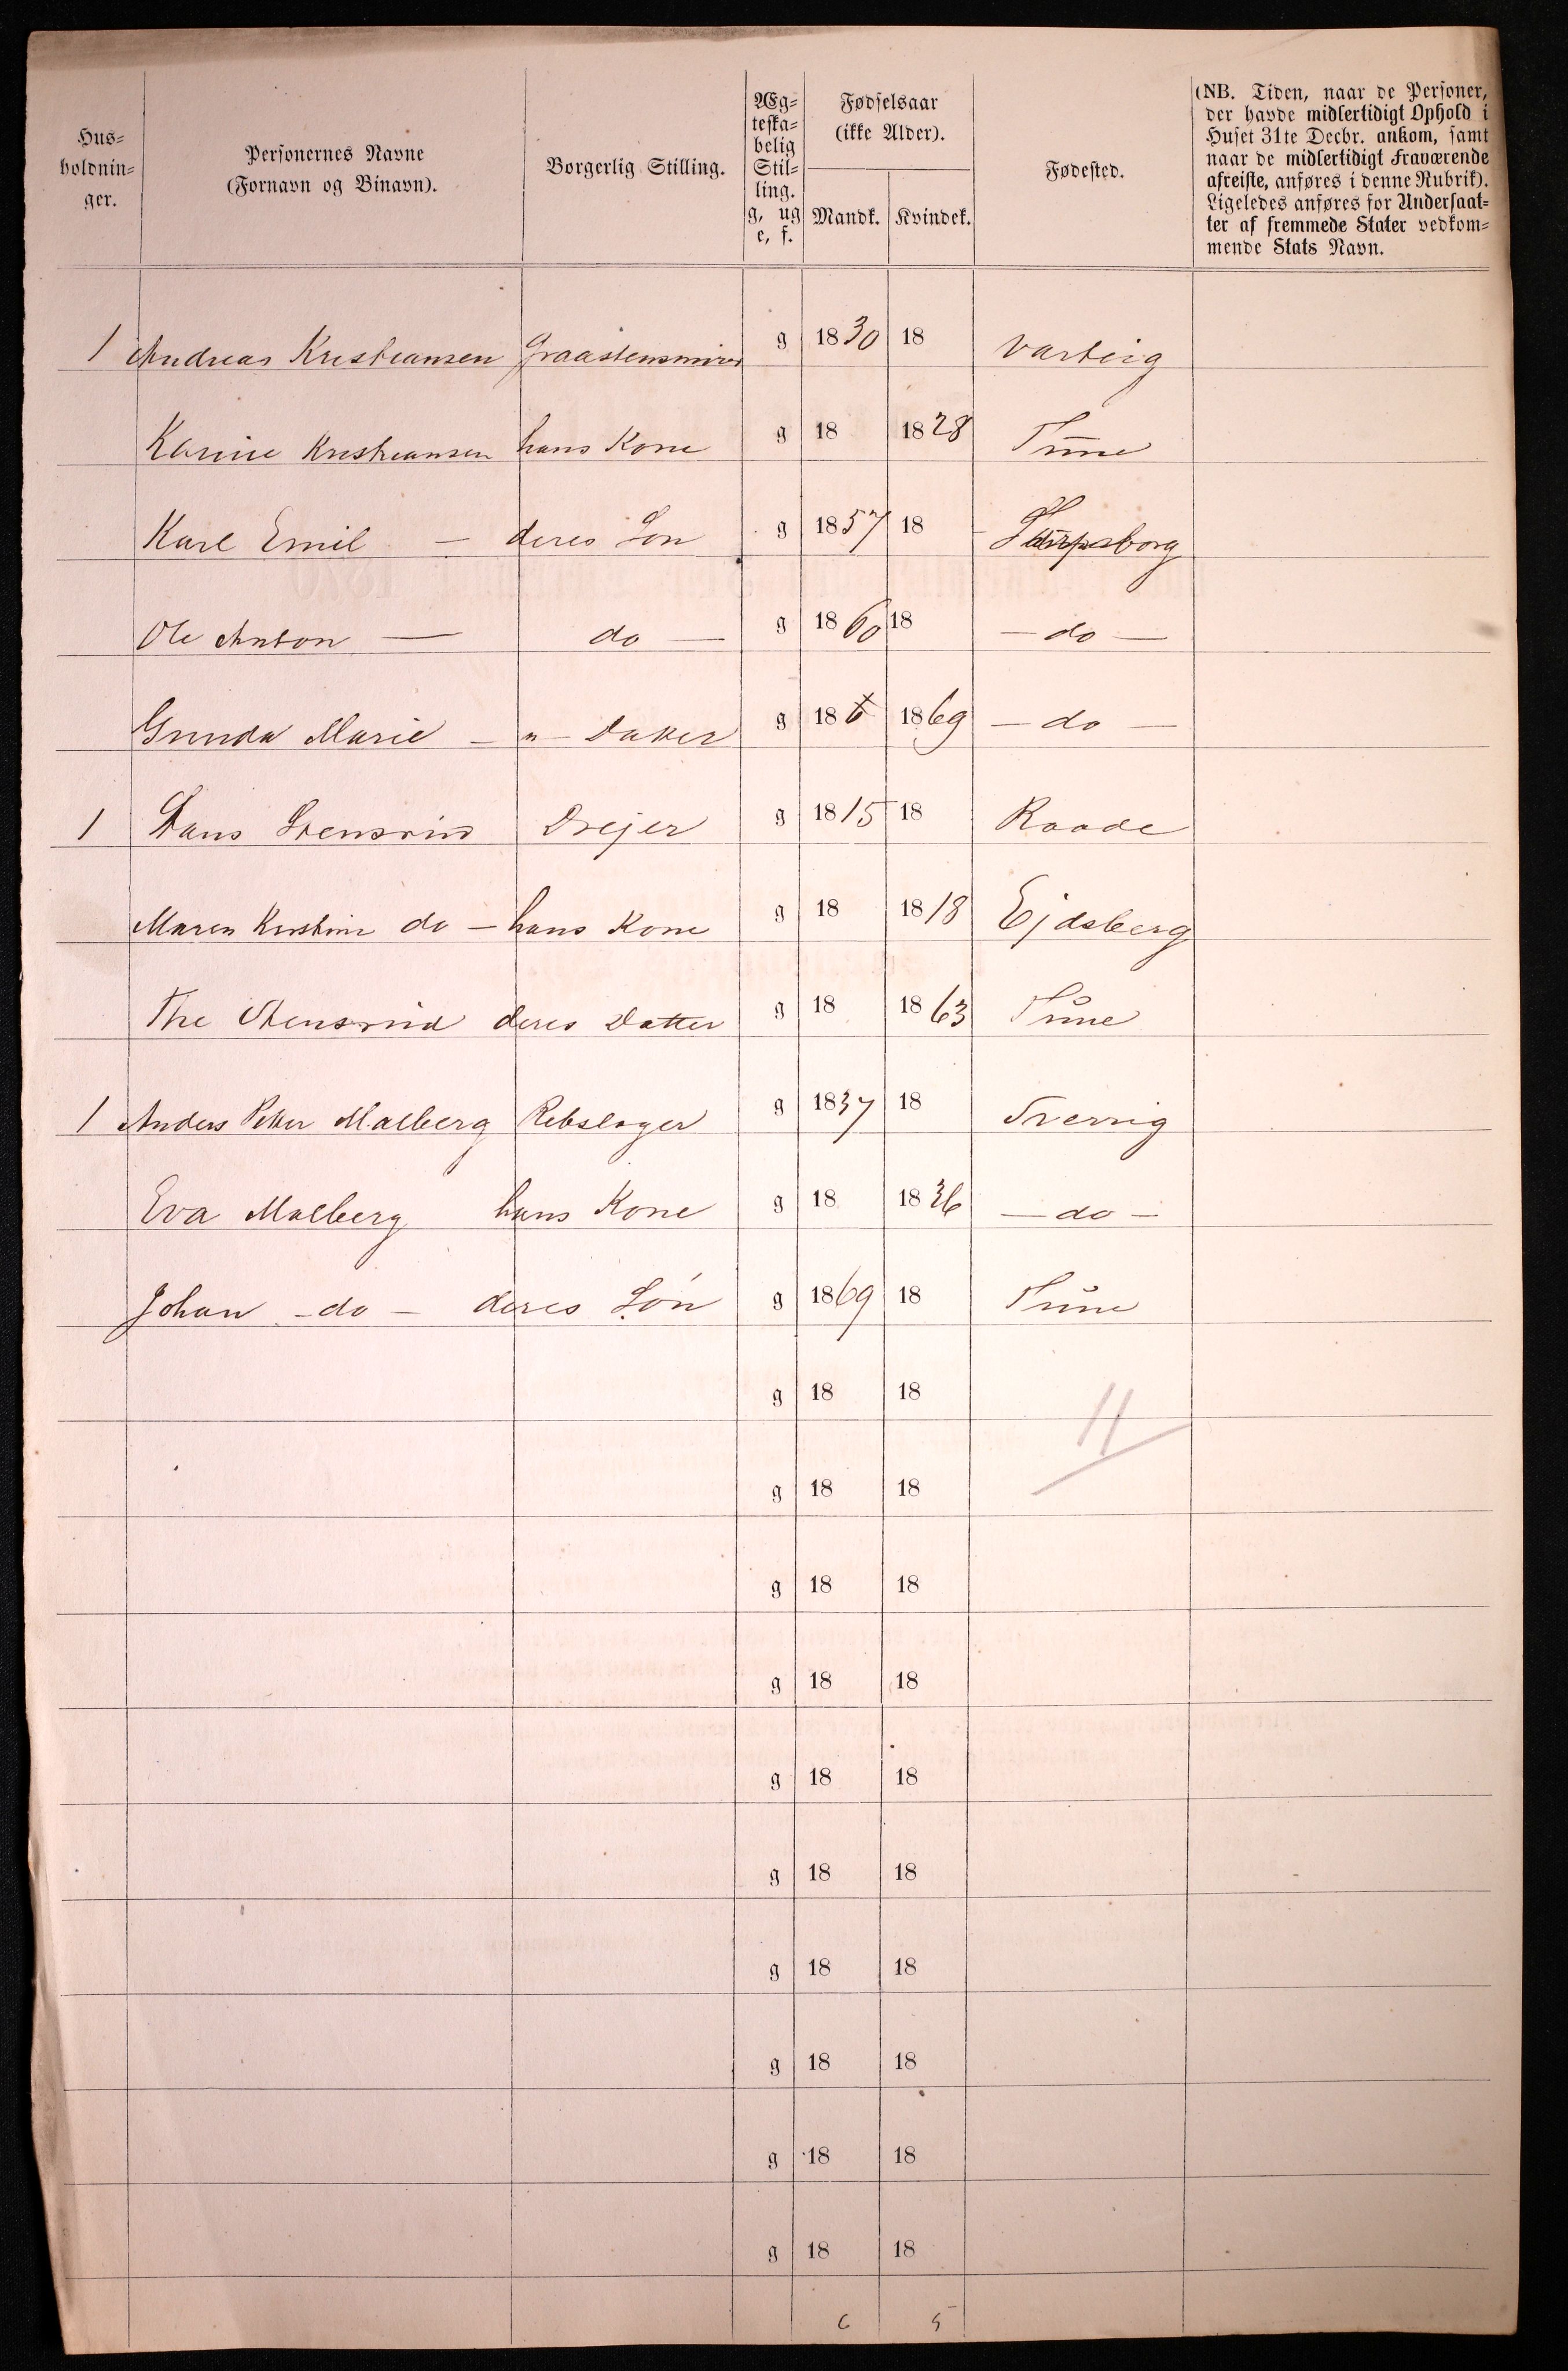 Hus-
holdnin-
ger.
Personernes Navne
(Fornavn og Binavn).
Borgerlig Stilling.
Æg-
teska-
belig
Stil-
ling.
g, ug
e, f.
Fødselsaar
(ikke Alder).
Mandk. Kvindek.
Fødested.
(NB. Tiden, naar de Personer,
der havde midlertidigt Ophold i
Huset 31te Decbr. ankom, samt
naar de midlertidigt Fraværende
afreiste, anføres i denne Rubrik).
Ligeledes anføres for Undersaat-
ter af fremmede Stater vedkom-
mende Stats Navn.
1 Andreas Kristiansen Graastensmirer g 1830 18 Varteig
Karine Kristiansen hans Kone g 18 1828 Tune
Karl Emil — deres Søn g 1857 18 Sarpsborg
Ole Anton — do — g 1860 18 — do —
Gunda Marie — " — Datter g 186 1869 — do —
1 Hans Stensrud Drejer g 1815 18 Raade
Maren Kristine do — hans Kone g 18 1818 Ejdsberg
Thea Stensrud deres Datter g 18 1863 Tune
1 Anders Peter Malberg Rebslager g 1837 18 Sverrig
Eva Malberg hans Kone g 18 1836 — do —
Johan — do — deres Søn g 1869 18 Tune
g 18 18
11
g 18 18
g 18 18
g 18 18
g 18 18
g 18 18
g 18 18
g 18 18
g 18 18
g 18 18
6 5